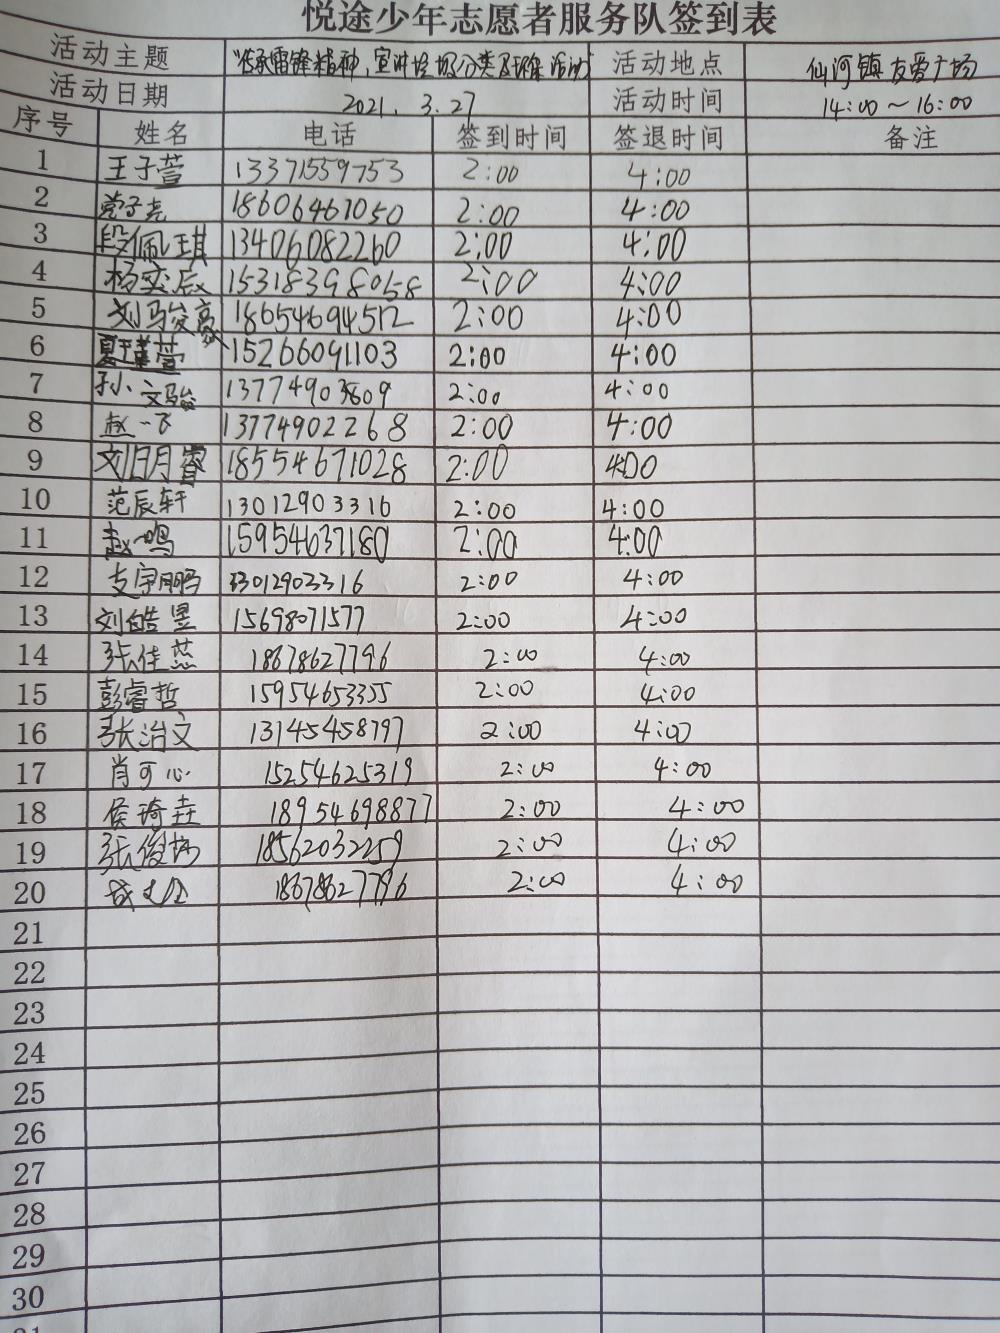 悦途少年志愿者服务队签到表
活动主题 "传承雷锋精神,宣讲垃圾分类及环保活动" 活动地点 仙河镇友爱广场
活动日期 2021.3.27 活动时间 14:00～16:00
序号 姓名 电话 签到时间 签退时间 备注
1 王子萱 13371559753 2:00 4:00
2 党子尧 18606461050 2:00 4:00
3 段佩琪 13406082260 2:00 4:00
4 杨奕辰 15318398058 2:00 4:00
5 刘马骏豪 18654694512 2:00 4:00
6 夏瑾萱 15266091103 2:00 4:00
7 孙文骏 13774903609 2:00 4:00
8 赵一飞 13774902268 2:00 4:00
9 刘明睿 18554671028 2:00 4:00
10 范辰轩 13012903316 2:00 4:00
11 赵一鸣 15954637180 2:00 4:00
12 支宇鹏 33012903316 2:00 4:00
13 刘皓昱 15698071577 2:00 4:00
14 张佳 18678627796 2:00 4:00
15 彭睿哲 15954653355 2:00 4:00
16 张治文 13145458797 2:00 4:00
17 肖可心 15254625319 2:00 4:00
18 侯琦垚 18954698877 2:00 4:00
19 张俊 18562032259 2:00 4:00
20 18678627796 2:00 4:00
21
22
23
24
25
26
27
28
29
30